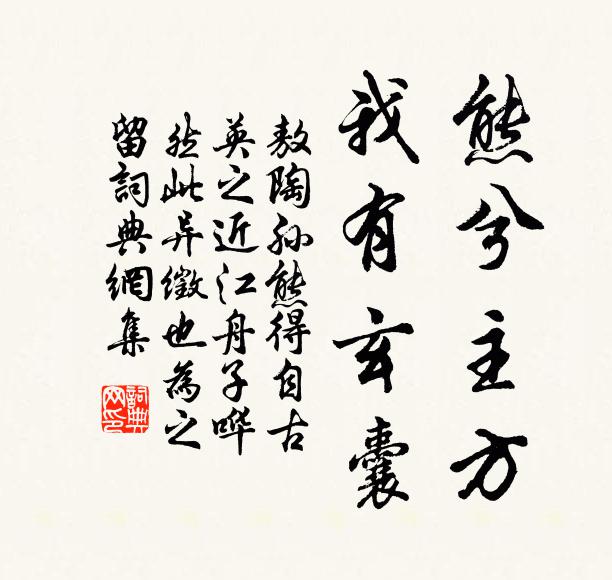 熊兮主方
我有玄囊
敖陶孙熊得自古
英之近江舟子哗
然此异徵也為之
留詞典網集
詞典
网印